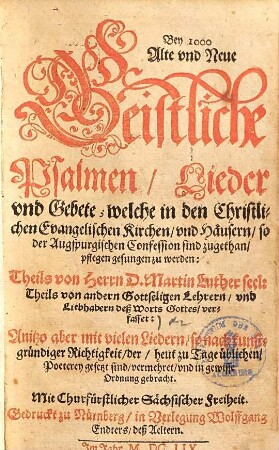 Bey 1000
Alte vnd Neue
Geistliche
Psalmen / Lieder
vnd Gebete / welche in den Christli-
chen Evangelischen Kirchen / vnd Häusern / so
der Augspurgischen Confession sind zugethan /
pflegen gesungen zu werden:
Theils von Herrn D. Martin Luther seel:
Theils von andern Gottseligen Lehrern / vnd
Liebhabern deß Worts Gottes / ver-
fasset:
Anitzo aber mit vielen Liedern / so nach kunst-
gründiger Richtigkeit / der / heut zu Tag üblichen /
Poeterey gesetzt sind / vermehret / vnd in gewisse
Ordnung gebracht.
Mit Churfürstlicher Sächsischer Freiheit.
Gedruckt zu Nürnberg / in Verlegung Wolffgang
Endters / deß Aeltern.
Im Jahr M. DC. LIX.